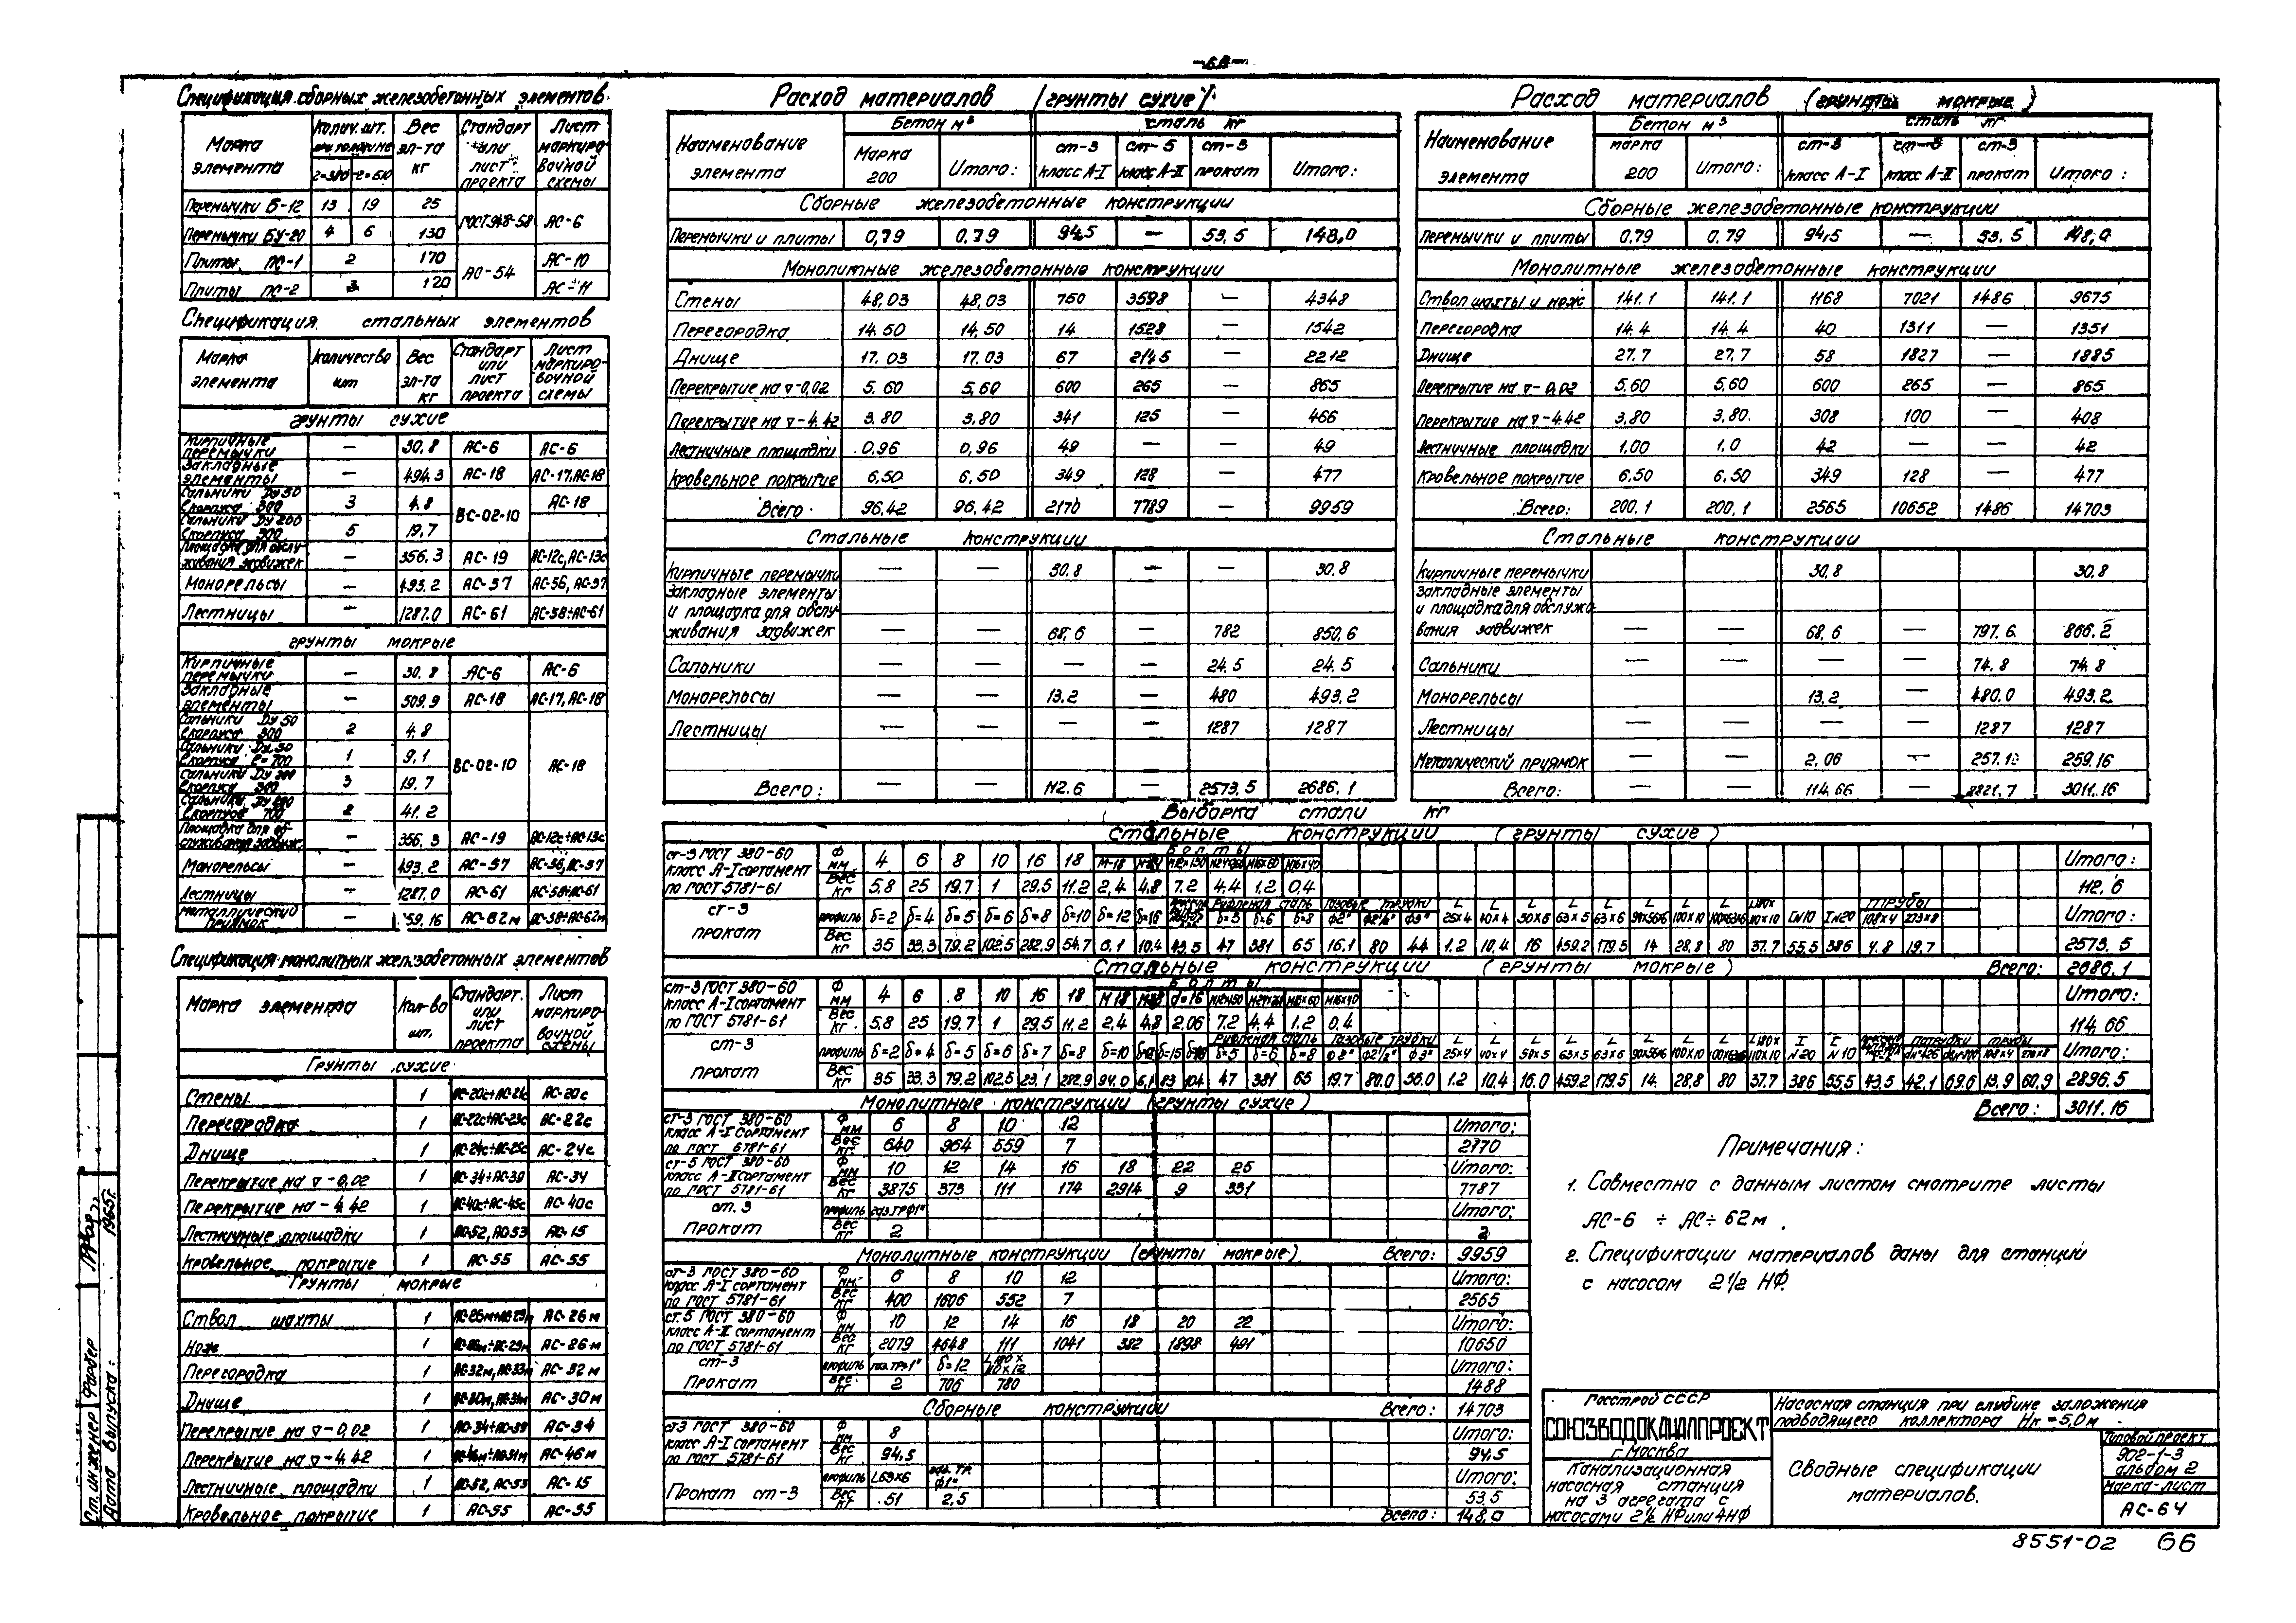 Спецификация сборных железобетонных элементов.
Марка элемента | Колич. шт. при толщине | Вес эл-та кг | Стандарт или лист проекта | Лист маркировочной схемы
Перемычки Б-12 13 19 25 ГОСТ 948-58 АС-6
Перемычки БУ-20 4 6 130
Плиты ПС-1 2 170 АС-54 АС-10
Плиты ПС-2 3 120 АС-11
Спецификация стальных элементов
Марка элемента | Количество шт | Вес эл-та кг | Стандарт или лист проекта | Лист маркировочной схемы
грунты сухие
Кирпичные перемычки — 30,8 АС-6 АС-6
Закладные элементы — 494.3 АС-18 АС-17, АС-18
Сальники Ду 50 Скорпуса 300 3 4.8 ВС-02-10 АС-18
Сальники Ду 200 Скорпуса 300 5 19,7
Площадка для обслуживания задвижек — 356.3 АС-19 АС-12с, АС-13с
Монорельсы — 493.2 АС-57 АС-56, АС-57
Лестницы — 1287.0 АС-61 АС-58÷АС-61
грунты мокрые
Кирпичные перемычки — 30.8 АС-6 АС-6
Закладные элементы — 509.9 АС-18 АС-17, АС-18
Сальники Ду 50 Скорпуса 300 2 4.8 ВС-02-10 АС-18
Сальники Ду 50 Скорпуса ℓ=700 1 9,1
Сальники Ду 200 Скорпуса 300 3 19.7
Сальники Ду 200 Скорпуса 700 2 41.2
Площадка для обслуживания задвиж. — 356.3 АС-19 АС-12с÷АС-13с
Монорельсы — 493.2 АС-57 АС-56, АС-57
Лестницы — 1287.0 АС-61 АС-58÷АС-61
Металлический приямок — 59.16 АС-62м АС-58÷АС-62м
Спецификация монолитных железобетонных элементов
Марка элемента | Кол-во шт. | Стандарт. или лист проекта | Лист маркировочной схемы
Грунты сухие
Стены 1 АС-20с÷АС-21с АС-20с
Перегородка 1 АС-22с÷АС-23с АС-22с
Днище 1 АС-24с÷АС-25с АС-24с
Перекрытие на ▽-0,02 1 АС-34÷АС-39 АС-34
Перекрытие на -4.42 1 АС-40с÷АС-45с АС-40с
Лестничные площадки 1 АС-52, АС-53 АС-15
Кровельное покрытие 1 АС-55 АС-55
Грунты мокрые
Ствол шахты 1 АС-26м÷АС-29м АС-26м
Нож 1 АС-26м÷АС-29м АС-26м
Перегородка 1 АС-32м, АС-33м АС-32м
Днище 1 АС-30м, АС-31м АС-30м
Перекрытие на ▽-0,02 1 АС-34÷АС-39 АС-34
Перекрытие на ▽-4,42 1 АС-46м÷АС-51м АС-46м
Лестничные площадки 1 АС-52, АС-53 АС-15
Кровельное покрытие 1 АС-55 АС-55
Расход материалов (грунты сухие)
Наименование элемента | Бетон м³ | сталь кг
Марка 200 | Итого: | ст-3 класс А-I | ст-5 класс А-II | ст-3 прокат | Итого:
Сборные железобетонные конструкции
Перемычки и плиты 0,79 0,79 94,5 — 53,5 148,0
Монолитные железобетонные конструкции
Стены 48,03 48,03 750 3598 — 4348
Перегородка 14.50 14,50 14 1528 — 1542
Днище 17.03 17.03 67 2145 — 2212
Перекрытие на ▽-0,02 5.60 5,60 600 265 — 865
Перекрытие на ▽-4.42 3.80 3,80 341 125 — 466
Лестничные площадки 0,96 0,96 49 — — 49
Кровельное покрытие 6,50 6,50 349 128 — 477
Всего: 96,42 96,42 2170 7789 — 9959
Стальные конструкции
Кирпичные перемычки — — 30.8 — — 30,8
Закладные элементы и площадка для обслуживания задвижек — — 68,6 — 782 850,6
Сальники — — — — 24.5 24.5
Монорельсы — — 13.2 — 480 493,2
Лестницы — — — — 1287 1287
Всего: — — 112.6 — 2573,5 2686,1
Расход материалов (грунты мокрые)
Наименование элемента | Бетон м³ | сталь кг
марка 200 | Итого: | ст-3 класс А-I | ст-5 класс А-II | ст-3 прокат | Итого:
Сборные железобетонные конструкции
Перемычки и плиты 0,79 0,79 94,5 — 53,5 148,0
Монолитные железобетонные конструкции
Ствол шахты и нож 141.1 141.1 1168 7021 1486 9675
Перегородка 14.4 14.4 40 1311 — 1351
Днище 27.7 27,7 58 1827 — 1885
Перекрытие на ▽-0,02 5,60 5,60 600 265 — 865
Перекрытие на ▽-4.42 3,80 3,80. 308 100 — 408
Лестничные площадки 1,00 1,0 42 — — 42
Кровельное покрытие 6,50 6,50 349 128 — 477
Всего: 200,1 200,1 2565 10652 1486 14703
Стальные конструкции
Кирпичные перемычки 30,8 30,8
Закладные элементы и площадка для обслуживания задвижек — — 68,6 — 797.6 866.2
Сальники — — — — 74.8 74.8
Монорельсы 13,2 — 480.0 493.2
Лестницы — — — — 1287 1287
Металлический приямок — — 2,06 — 257.10 259.16
Всего: — — 114,66 — 2821.7 3011.16
Выборка стали кг
Стальные конструкции (грунты сухие)
ст-3 ГОСТ 380-60 класс А-I сортамент по ГОСТ 5781-61 Ф мм 4 6 8 10 16 18 Болты М-18 М12×130 М16×60 М16×40 Итого:
Вес кг 5,8 25 19.7 1 29.5 11.2 2,4 4,8 7.2 4.4 1,2 0,4 112,6
ст-3 прокат профиль δ=2 δ=4 δ=5 δ=6 δ=8 δ=10 δ=12 δ=16 Рифленая сталь δ=5 δ=6 δ=8 Газовые трубки Ф2" Ф2½" Ф3" L 25×4 40×4 50×5 63×5 63×6 100×10 I№10 I№20 трубы 108×4 273×8 Итого:
Вес кг 35 33.3 79.2 102,5 282,9 54,7 6,1 10,4 43,5 47 381 65 16,1 80 44 1.2 10,4 16 459.2 179.5 14 28,8 80 37.7 55,5 386 4.8 19,7 2573.5
Всего: 2686.1
Стальные конструкции (грунты мокрые)
ст-3 ГОСТ 380-60 класс А-I сортамент по ГОСТ 5781-61 Ф мм 4 6 8 10 16 18 Болты М18 d=16 М16×60 М16×40 Итого:
Вес кг 5.8 25 19,7 1 29.5 11,2 2,4 4,8 2,06 7.2 4,4 1.2 0.4 114.66
ст-3 прокат профиль δ=2 δ=4 δ=5 δ=6 δ=7 δ=8 δ=10 Рифленая сталь δ=5 δ=6 δ=8 Газовые трубки Ф2" Ф2½" Ф3" L 25×4 40×4 50×5 63×5 63×6 100×10 I №20 [ №10 Патрубки трубы Итого:
Вес кг 35 33.3 79.2 102,5 23,1 282,9 94.0 6,1 83 104 47 381 65 19.7 80.0 56.0 1.2 10,4 16.0 459.2 179.5 14. 28,8 80 37.7 386 55,5 43,5 42,1 69.6 13.9 60,9 2896.5
Всего: 3011.16
Монолитные конструкции (грунты сухие)
ст-3 ГОСТ 380-60 класс А-I сортамент по ГОСТ 5781-61 Ф мм 6 8 10 12 Итого:
Вес кг 640 964 559 7 2170
ст-5 ГОСТ 380-60 класс А-II сортамент по ГОСТ 5781-61 Ф мм 10 12 14 16 18 22 25 Итого:
Вес кг 3875 373 111 174 2914 9 331 7787
ст.3 прокат профиль газ.тр.Ф1" Итого:
Вес кг 2 2
Монолитные конструкции (грунты мокрые) Всего: 9959
ст-3 ГОСТ 380-60 класс А-I сортамент по ГОСТ 5781-61 Ф мм 6 8 10 12 Итого:
Вес кг 400 1606 552 7 2565
ст.5 ГОСТ 380-60 класс А-II сортамент по ГОСТ 5781-61 Ф мм 10 12 14 16 18 20 22 Итого:
Вес кг 2079 4648 111 1041 382 1898 491 10650
ст-3 Прокат профиль газ.тр.Ф1" δ=12 Итого:
Вес кг 2 706 780 1488
Сборные конструкции Всего: 14703
ст3 ГОСТ 380-60 класс А-I сортамент по ГОСТ 5781-61 Ф мм 8 Итого:
Вес кг 94,5 94,5
Прокат ст-3 профиль L63×6 газ.тр. Ф1" Итого:
Вес кг 51 2,5 53,5
Всего: 148,0
Примечания:
1. Совместна с данным листом смотрите листы
АС-6 ÷ АС÷62м.
2. Спецификации материалов даны для станций
с насосам 2½ НФ.
Госстрой СССР
СОЮЗВОДОКАНАЛПРОЕКТ
г. Москва
Канализационная насосная станция на 3 агрегата с насосами 2½ НФ или 4НФ
Насосная станция при глубине заложения подводящего коллектора Нк=5,0м
Сводные спецификации материалов.
Типовой проект
902-1-3
альбом 2
Марка-лист
АС-64
Ст. инженер Фарбер
Дата выпуска: 1965г.
8551-02 66